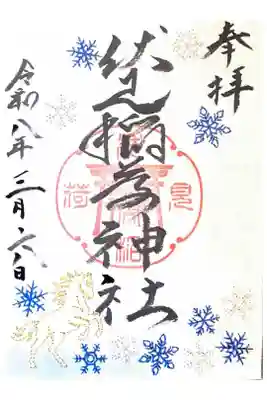 奉拝
伏見稲荷神社
令和八年三月六日